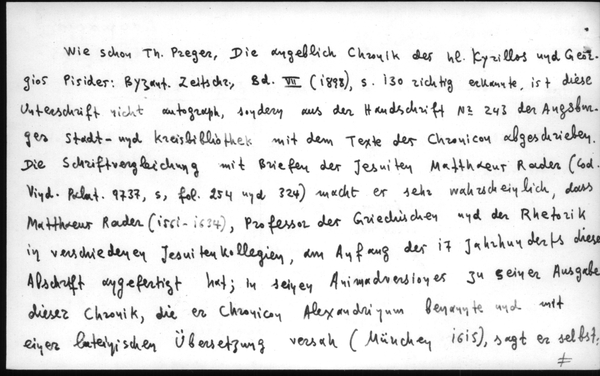 Wie schon Th. Preger, Die angeblich Chronik des hl. Kyrillos und Geor-
gios Pisides: Byzant. Zeitschr., Bd. VII (1898), s. 130 richtig erkannte, ist diese
Unterschrift nicht autograph, sondern aus der Handschrift № 243 der Augsbur-
ger Stadt- und Kreisbibliothek mit dem Texte der Chronicon abgeschrieben.
Die Schriftvergleichung mit Briefen des Jesuiten Matthaeus Rader (Cod.
Vind. Palat. 9737, s, fol. 254 und 324) macht es sehr wahrscheinlich, dass
Matthaeus Rader (1561-1634), Professor der Griechischen und der Rhetorik
in verschiedenen Jesuitenkollegien, am Anfang des 17 Jahrhunderts diese
Abschrift angefertigt hat; in seinen Animadversiones zu seiner Ausgabe
dieser Chronik, die er Chronicon Alexandrinum benannte und mit
einer lateinischen Übersetzung versah (München 1615), sagt er selbst:
≠